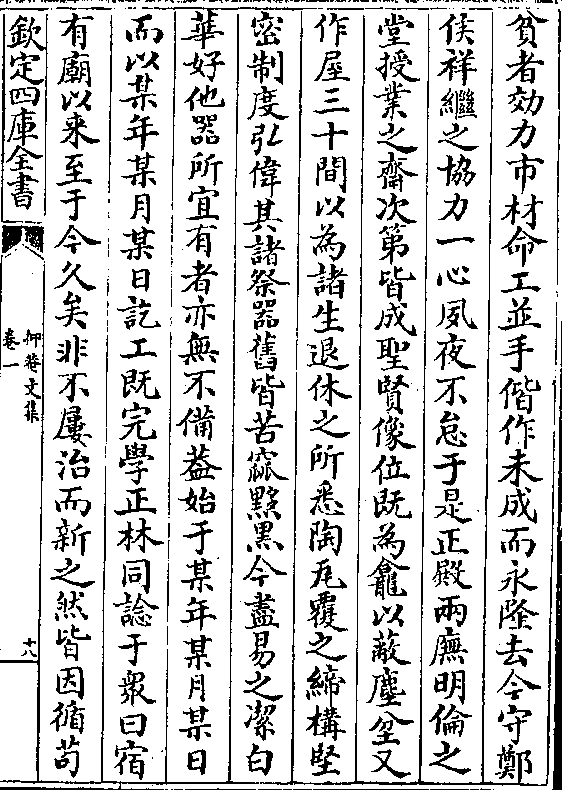 貧者効力市材命工並手偕作未成而永隆去今守鄭
侯祥繼之協力一心夙夜不怠于是正殿兩廡明倫之
堂授業之齋次第皆成聖賢像位既為龕以蔽塵坌又
作屋三十間以為諸生退休之所悉陶瓦覆之締構堅
密制度弘偉其諸祭器舊皆苦窳黟黒今盡易之潔白
華好他器所宜有者亦無不備葢始于某年某月某日
而以某年某月某日訖工既完學正林同諗于衆曰宿
有廟以来至于今久矣非不屢治而新之然皆因循苟
欽定四庫全書
抑菴文集
卷一
十八